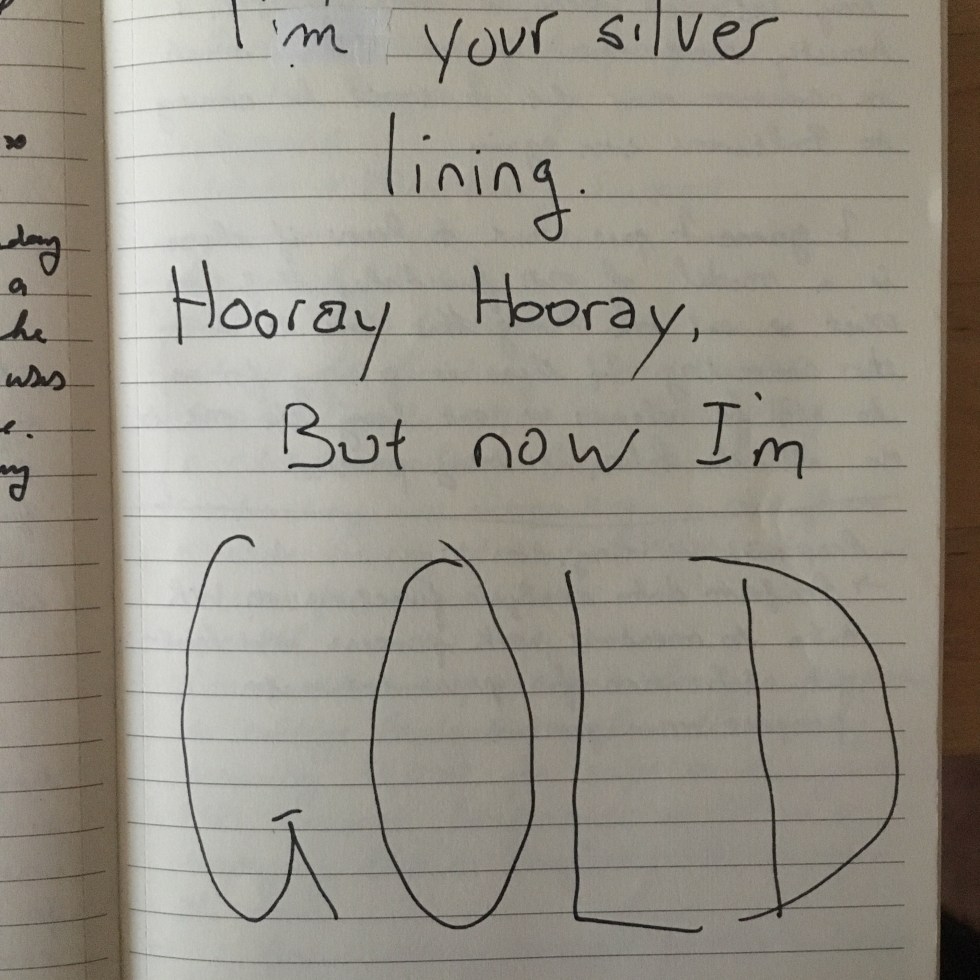 I'm your silver
lining.
Hooray Hooray,
But now I'm
GOLD
day
a
he
was